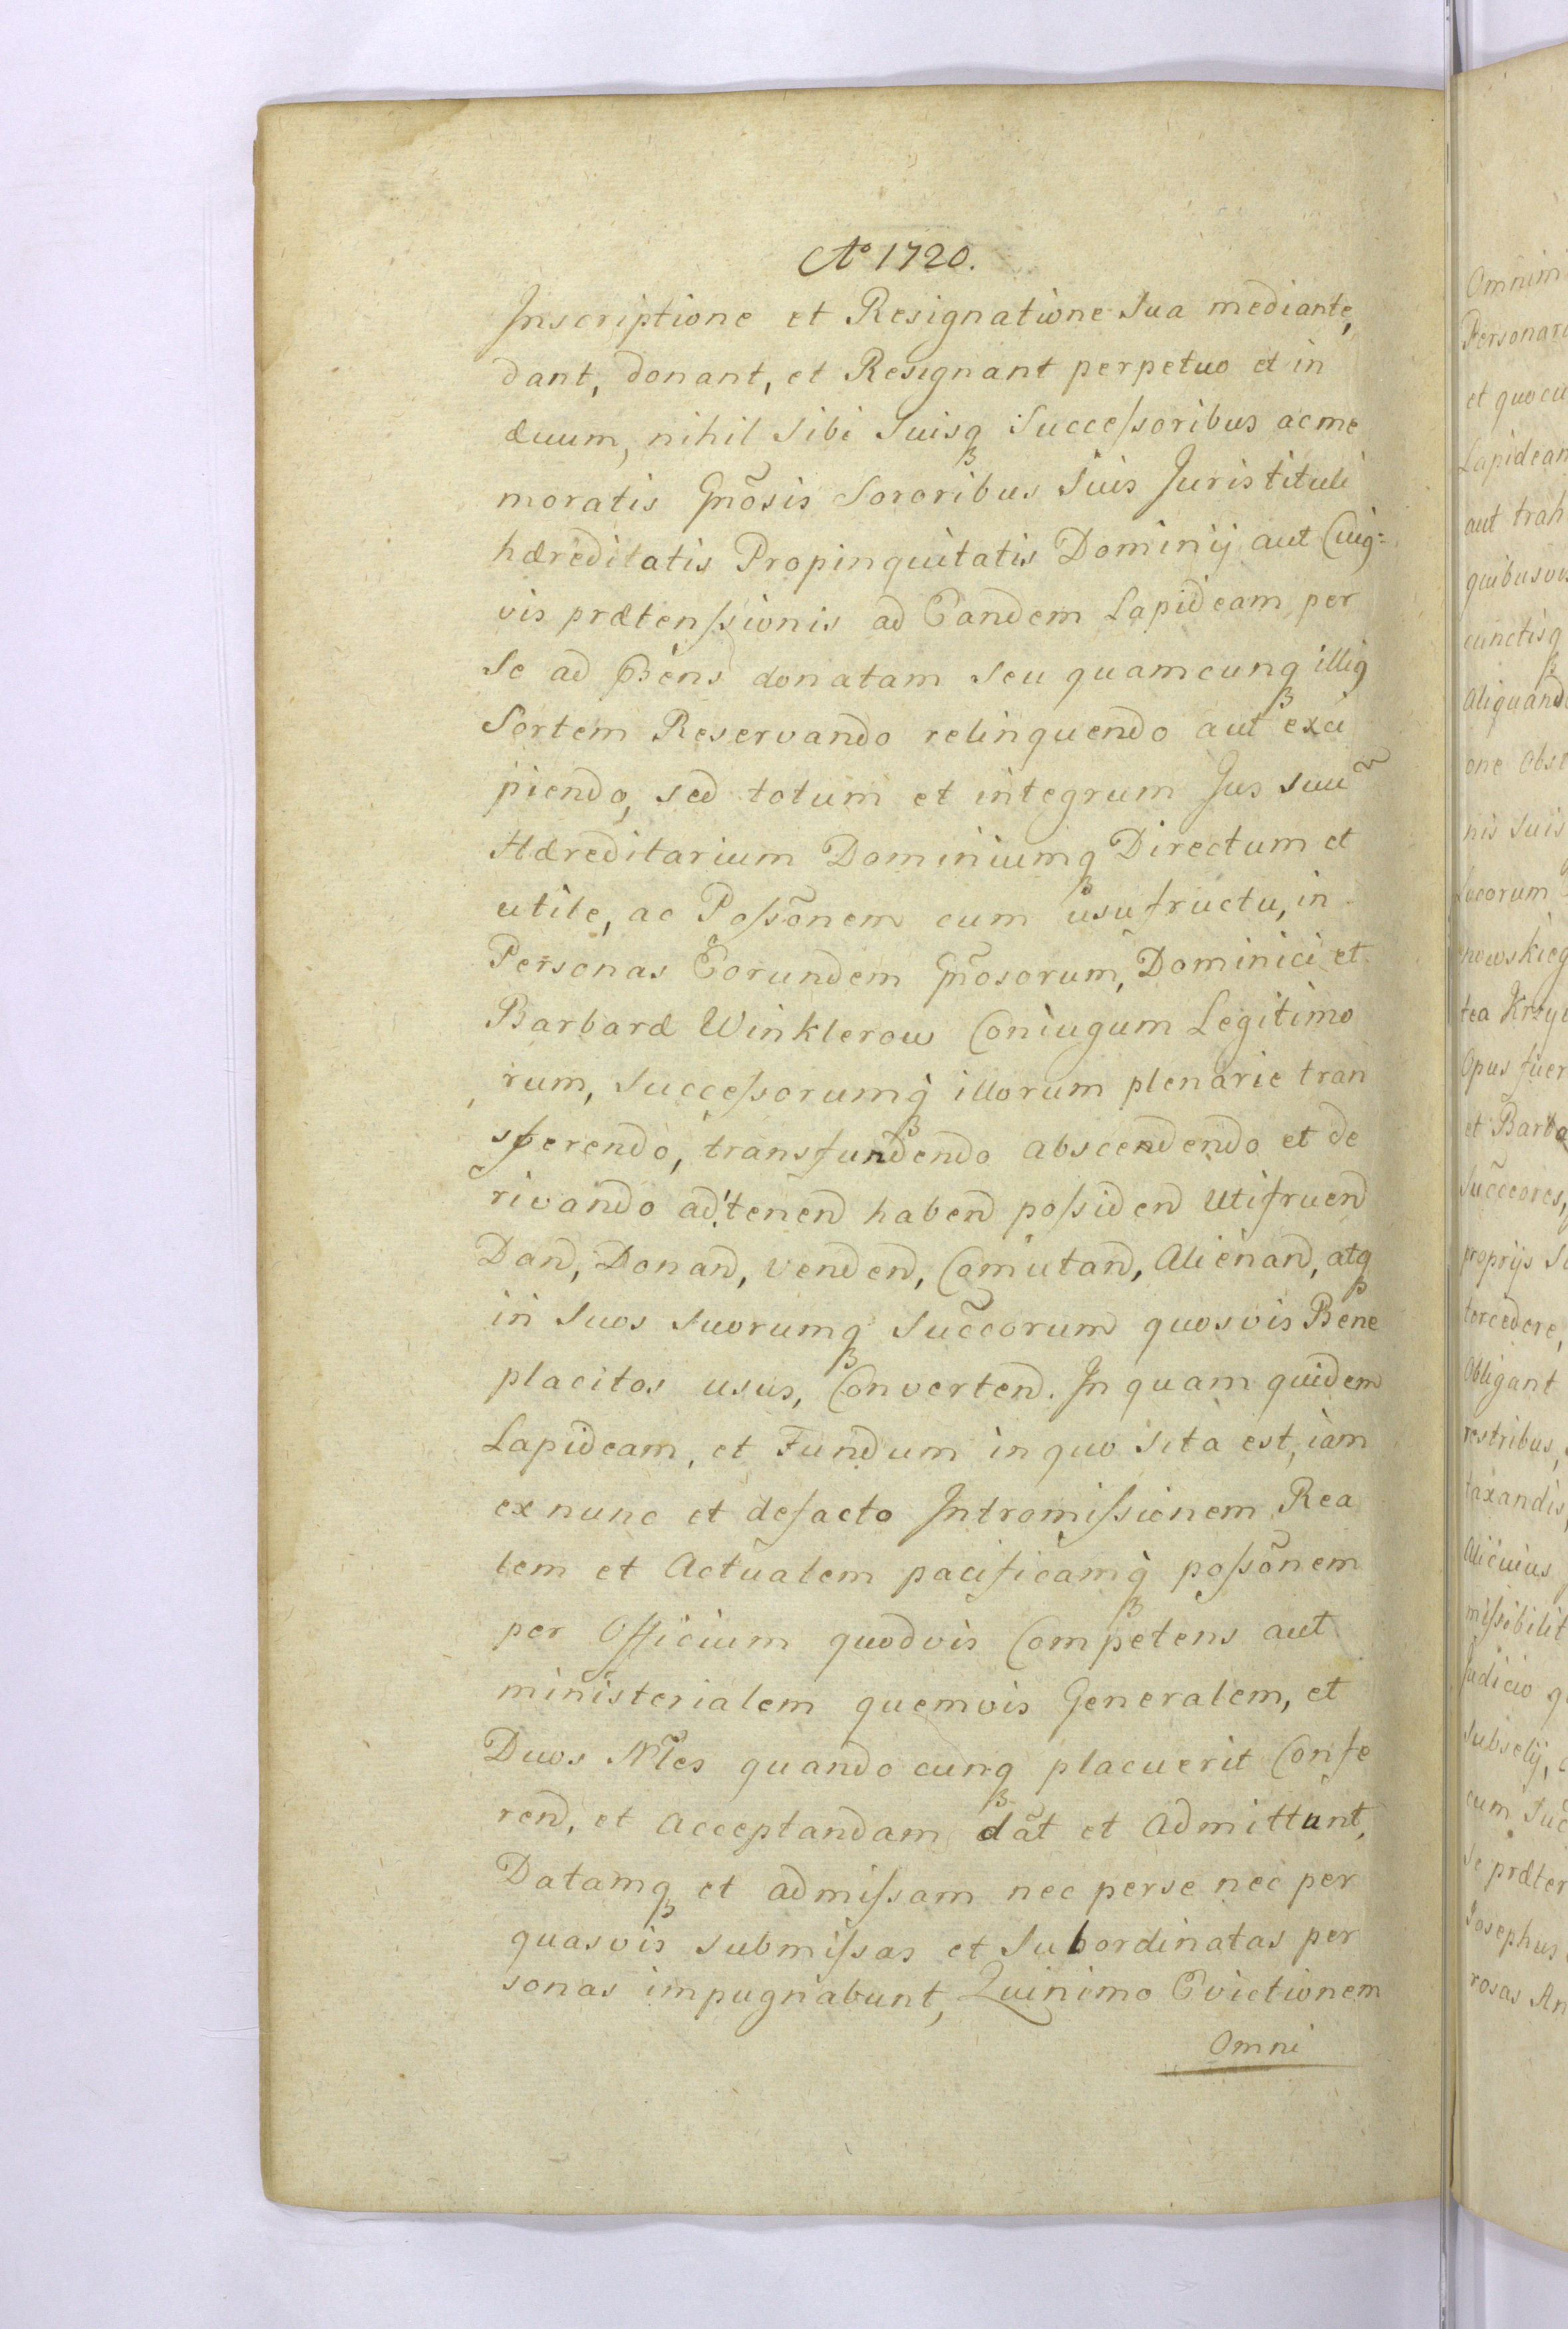 Aº 1720.
Inscriptione et Resignatione Sua mediante,
dant, donant, et Resignant perpetuo et in
ævum, nihil Sibi Suisqꝫ Successoribus ac me
moratis Gñosis Sororibus Suis Juris tituli
hæreditatis Propinquitatis Dominij aut Cuig=
vis prætenssionis ad Eandem Lapideam per
Se ad Pñens donatam Seu quamcunqꝫ illig
Sortem Reservando relinquendo aut exci
piendo, sed totum et integrum Jus suũ
Hæreditarium Dominiumqꝫ Directum et
utile, ac Possõnem cum usufructu, in
Personas Eorundem Gñosorum, Dominici et
Barbaræ Winklerow Coniugum Legitimo
rum, Successorumqꝫ illorum plenarie tran
sferendo, transfundendo abscendendo et de
rivando ad tenend habend possidend Utifruend
Dand, Donand, venden, Comutand, Alienand, atqꝫ
in Suos Suorumqꝫ Succorum quosvis Bene
placitos usus, Convertend. In quam quidem
Lapideam, et Fundum in quo Sita est, iam
ex nunc et defacto Intromissionem Rea
lem et Actualem pacificamqꝫ possõnem
per Officium quodvis Competens aut
ministerialem quemvis Generalem, et
Duos Nl̃es quando cunqꝫ placuerit Confe
rend, et acceptandam dãt et admittunt,
Datamqꝫ et admissam nec perse nec per
quasvis submissas et Subordinatas per
sonas impugnabunt, Quinimo Evictionem
Omni
Omnim
Personar
et quocu
Lapidean
aut trah
quibusvis
cunctisqꝫ
Aliquand
one obst
nis Suis
Locorum
nowskieg
tea Krzy
Opus fuer
et Barba
Succeores,
proprijs S
tercedere,
Obligant
restribus,
taxandis,
Alicuius
missibilit
Judicio q
Subselij,
cum Suc
Se præter
Josephus
rosas An